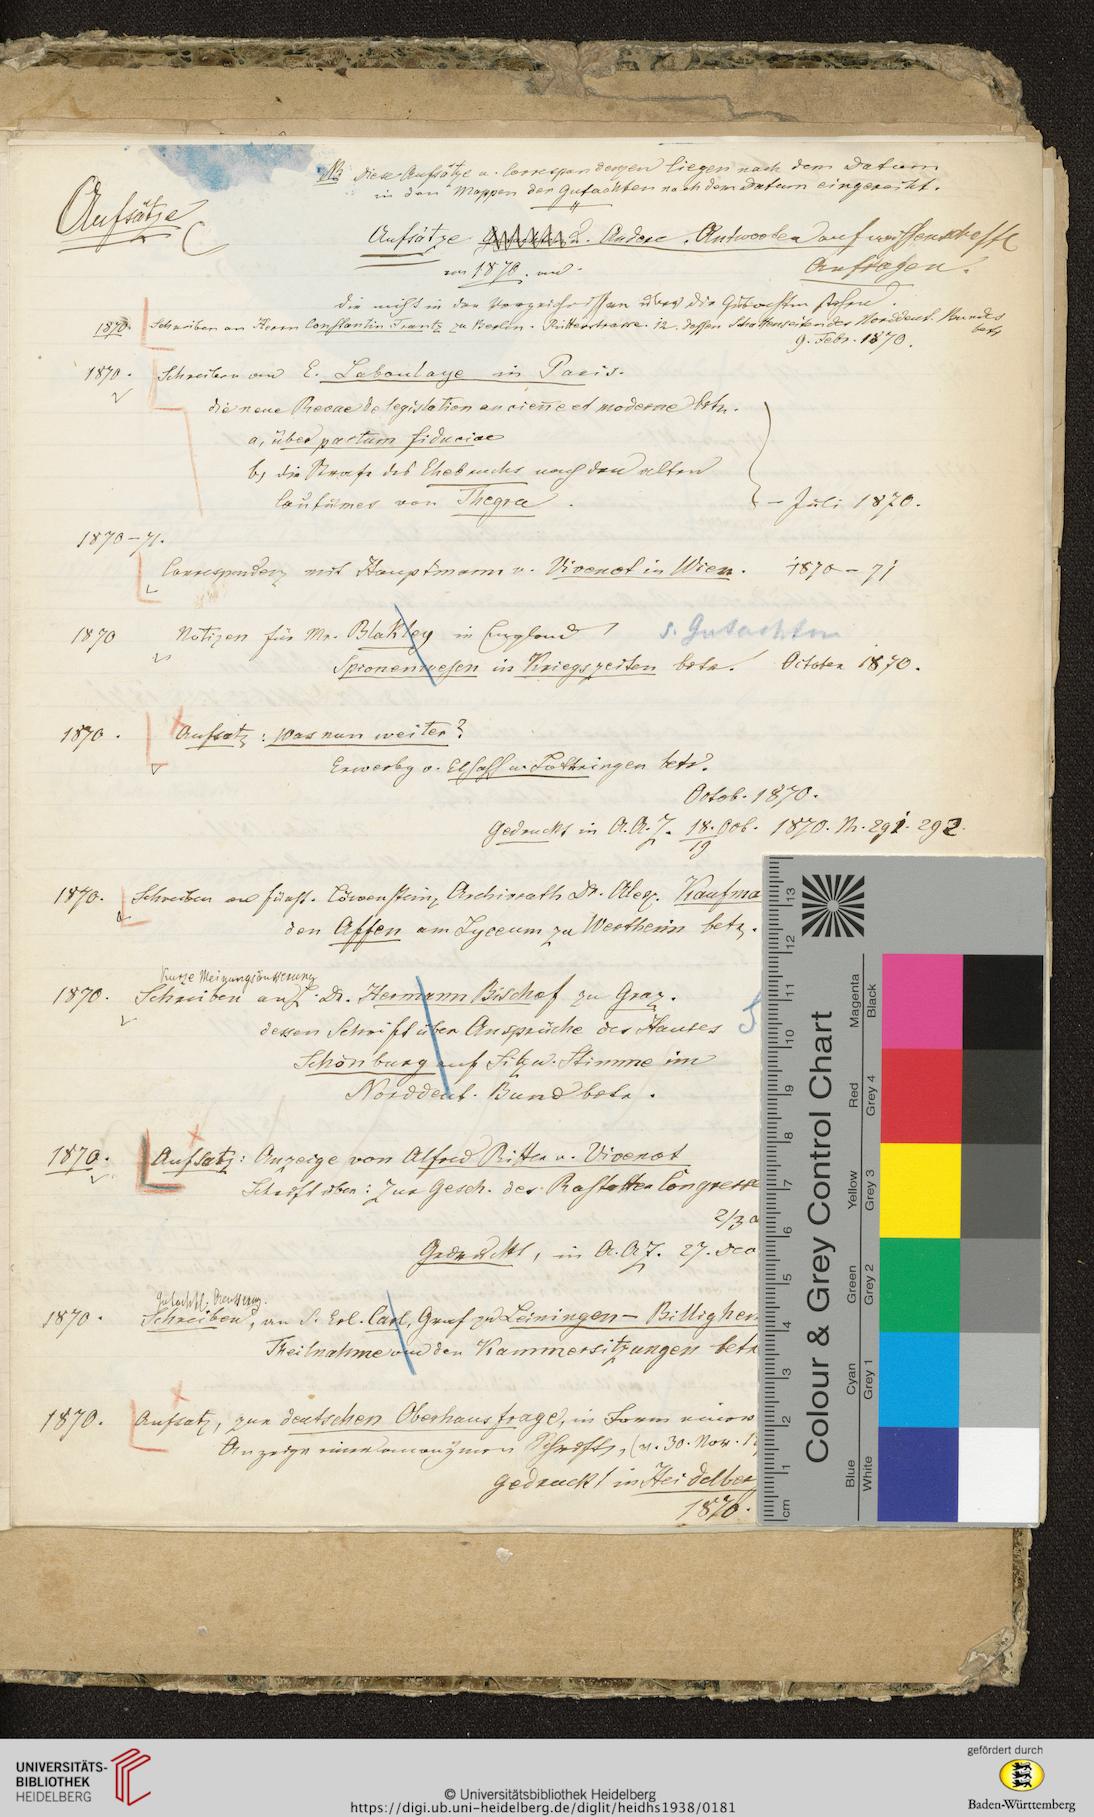 NB Diese Aufsätze u. Correspondenzen liegen nach dem Datum
in den Mappen der Gutachten nach dem Datum eingereiht.
Aufsätze
Aufsätze u. Andere Antworten auf wissenschaftl
von 1870. an. Anfragen.
die nicht in den Verzeichnissen über die Gutachten stehen.
1870. Schreiben an Herrn Constantin Frantz zu Berlin. Ritterstrasse 12, dessen Schattenseiten des Norddeut. Bundes betr
9. Febr. 1870.
1870. Schreiben an E. Laboulaye in Paris.
die neue Revue de legislation ancienne et moderne betr.
a, über pactum fiduciae
b, die Strafe des Ehebruchs nach den alten
Coutumes von Thegra. – Juli 1870.
1870–71.
Correspondenz mit Hauptmann v. Vivenot in Wien. 1870–71
1870 Notizen für Mr. Blakley in England s. Gutachten
Spionenwesen in Kriegszeiten betr. October 1870.
1870. Aufsatz: Was nun weiter?
Erwerbg v. Elsaß u. Lothringen betr.
Octob. 1870.
Gedruckt in A.A.Z. 18. Oct. 1870. Nr. 291. 292.
19
1870. Schreiben an fürstl. Löwenstein. Archivrath Dr. Alex. Kaufma
den Affen am Lyceum zu Wertheim betr.
Kurze Meinungsäusserung
1870. Schreiben an Dr. Hermann Bischof zu Graz. S
dessen Schrift über Ansprüche des Hauses
Schönburg auf Sitz u. Stimme im
Norddeut. Bund betr.
1870. Aufsatz: Anzeige von Alfred Ritter v. Vivenot
Schrift über: Zur Gesch. des Rastatter Congresse
2/3
Gedruckt, in A.A.Z. 27. Dec
Gutachtl. Aeusserg.
1870. Schreiben, an S. Erl. Carl, Graf zu Leiningen–Billighei
Theilnahme an den Kammersitzungen betr
1870. Aufsatz, zur deutschen Oberhausfrage, in Form einer
Anzeige einer anonymen Schrift, (v. 30. Nov. 1
gedruckt in Heidelber
1870.
Colour & Grey Control Chart
Blue Cyan Green Yellow Red Magenta
White Grey 1 Grey 2 Grey 3 Grey 4 Black
cm 1 2 3 4 5 6 7 8 9 10 11 12 13
UNIVERSITÄTS-
BIBLIOTHEK
HEIDELBERG
© Universitätsbibliothek Heidelberg
https://digi.ub.uni-heidelberg.de/diglit/heidhs1938/0181
gefördert durch
Baden-Württemberg